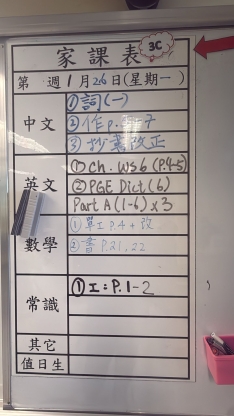 家課表 3C
第 週 1月26日(星期一)
中文
①詞(一)
②作p.5-7
③抄書改正
英文
①ch. ws6 (P.4-5)
②PGE Dict(6)
Part A (1-6) x3
數學
①單工P.4 + 改
②書 P.21, 22
常識
①工: P.1-2
其它
值日生